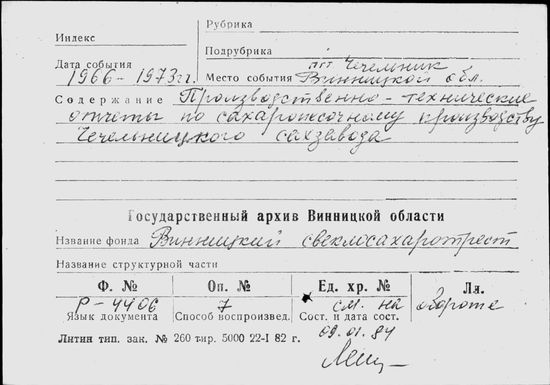 Рубрика
Индекс
Подрубрика
Дата события
пгт Чечельник
1966-1973гг.
Место события Винницкой обл.
Содержание Производственно-технические
отчеты по сахаропесочному производству
Чечельницкого сахзавода
Государственный архив Винницкой области
Название фонда Винницкий свеклосахаротрест
Название структурной части
Ф. № Оп. № Ед. хр. № Лл.
Р-4406 7 см. на обороте
Язык документа Способ воспроизвед. Сост. и дата сост.
09.01.84
Литин тип. зак. № 260 тир. 5000 22-I 82 г.